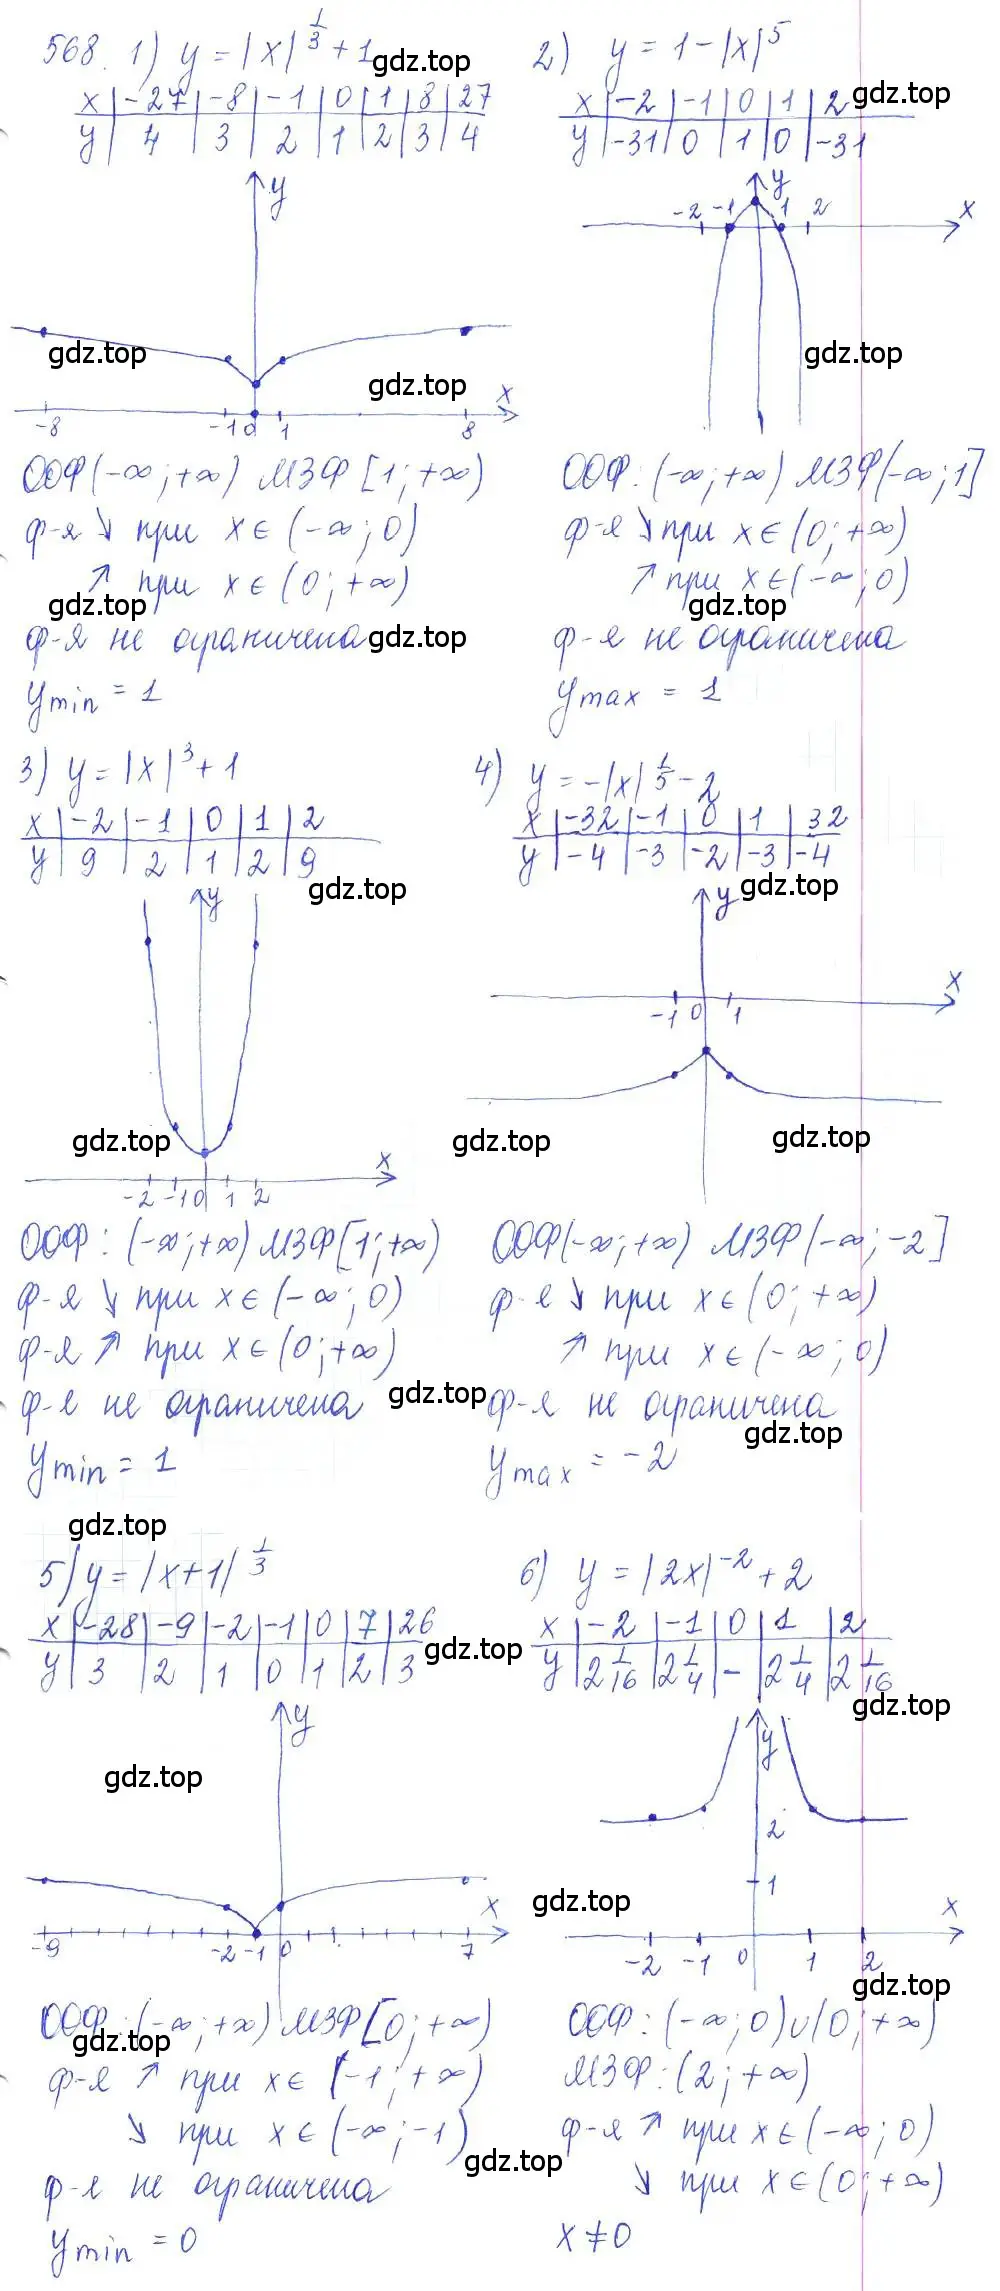 568. 1) y = |x|^(1/3) + 1
x | -27 | -8 | -1 | 0 | 1 | 8 | 27
y | 4 | 3 | 2 | 1 | 2 | 3 | 4
gdz.top
y
gdz.top
gdz.top
x
-8 -1 0 1 8
ООФ (-∞; +∞) МЗФ [1; +∞)
ф-я ↘ при x ∈ (-∞; 0)
↗ при x ∈ (0; +∞)
gdz.top
ф-я не ограничена gdz.top
y min = 1
2) y = 1 - |x|^5
x | -2 | -1 | 0 | 1 | 2
y | -31 | 0 | 1 | 0 | -31
gdz.top
y
-2 -1 1 2 x
gdz.top
ООФ: (-∞; +∞) МЗФ (-∞; 1]
ф-я ↘ при x ∈ (0; +∞)
↗ при x ∈ (-∞; 0)
gdz.top
ф-я не ограничена
y max = 1
3) y = |x|^3 + 1
x | -2 | -1 | 0 | 1 | 2
y | 9 | 2 | 1 | 2 | 9
gdz.top
y
gdz.top
x
-2 -1 0 1 2
ООФ: (-∞; +∞) МЗФ [1; +∞)
ф-я ↘ при x ∈ (-∞; 0)
ф-я ↗ при x ∈ (0; +∞)
ф-я не ограничена gdz.top
y min = 1
gdz.top
4) y = -|x|^(1/5) - 2
x | -32 | -1 | 0 | 1 | 32
y | -4 | -3 | -2 | -3 | -4
gdz.top
y
x
-1 0 1
gdz.top gdz.top
ООФ (-∞; +∞) МЗФ (-∞; -2]
ф-я ↘ при x ∈ (0; +∞)
↗ при x ∈ (-∞; 0)
ф-я не ограничена
gdz.top
y max = -2
5) y = |x+1|^(1/3)
x | -28 | -9 | -2 | -1 | 0 | 7 | 26
y | 3 | 2 | 1 | 0 | 1 | 2 | 3
gdz.top
y
gdz.top
x
-9 -2 -1 0 7
ООФ: (-∞; +∞) МЗФ [0; +∞)
gdz.top
ф-я ↗ при x ∈ (-1; +∞)
↘ при x ∈ (-∞; -1)
gdz.top
ф-я не ограничена
y min = 0
6) y = |2x|^(-2) + 2
x | -2 | -1 | 0 | 1 | 2
y | 2 1/16 | 2 1/4 | - | 2 1/4 | 2 1/16
gdz.top
y
2
1
gdz.top
x
-2 -1 0 1 2
gdz.top
ООФ: (-∞; 0)∪(0; +∞)
МЗФ: (2; +∞)
ф-я ↗ при x ∈ (-∞; 0)
↘ при x ∈ (0; +∞)
x ≠ 0